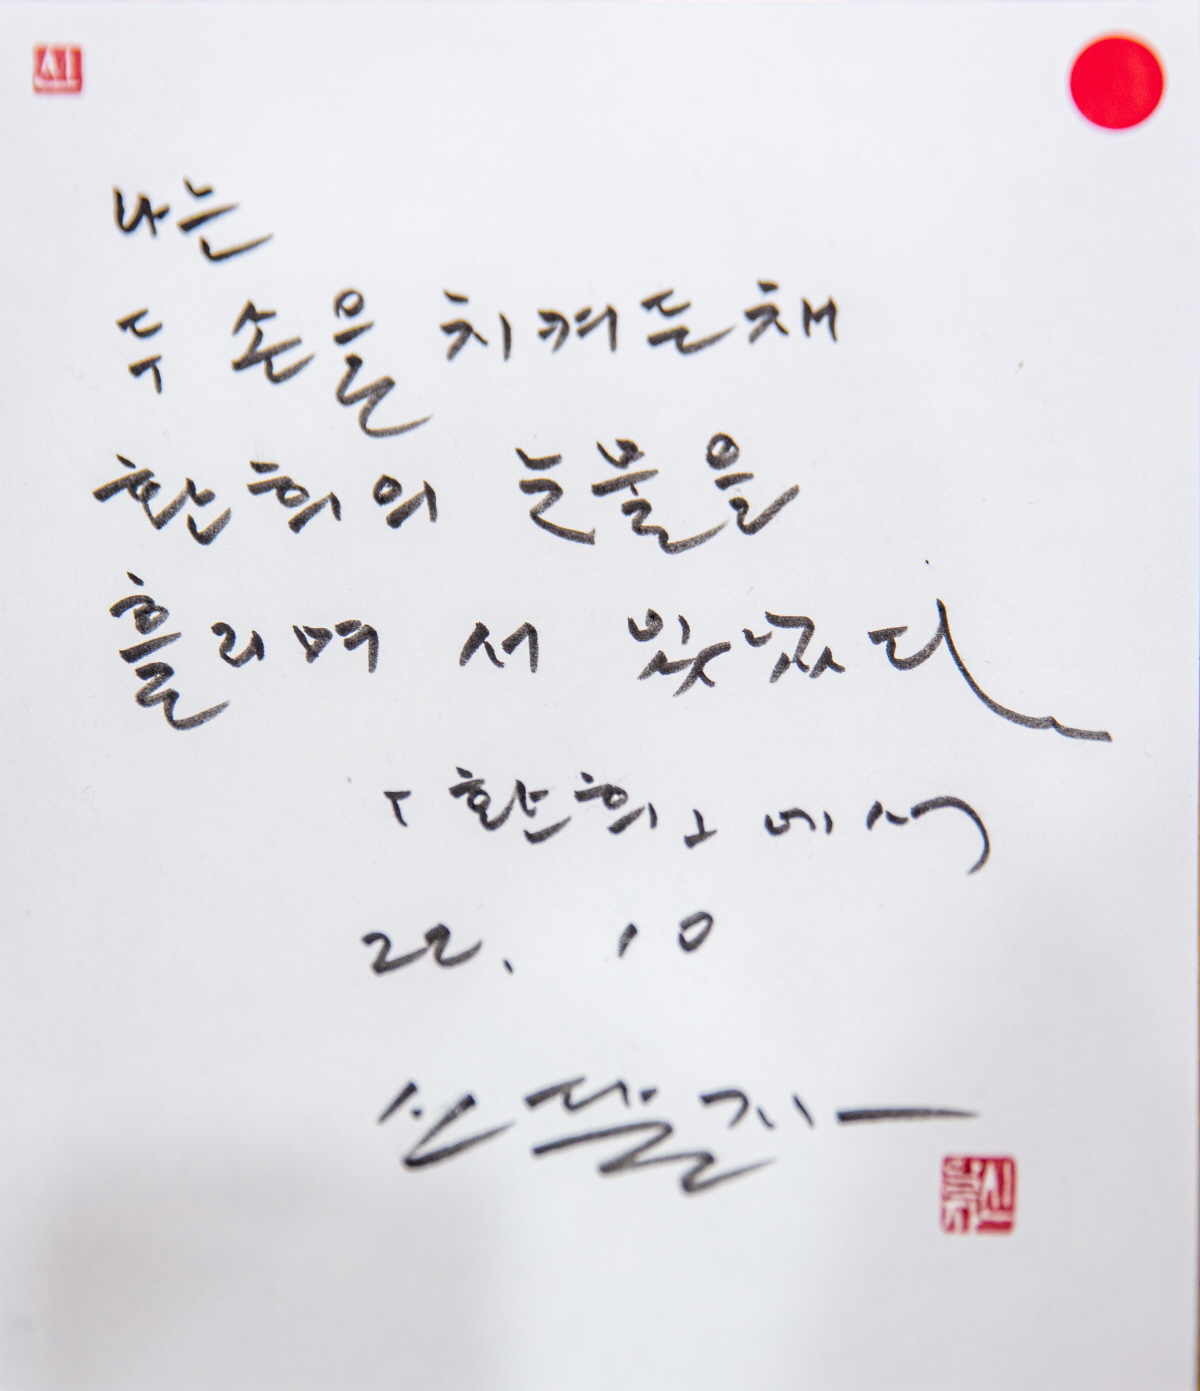 나는
두 손을 치켜든채
환희의 눈물을
흘리며 서 있었다
「환희」에서
22. 10
신달자